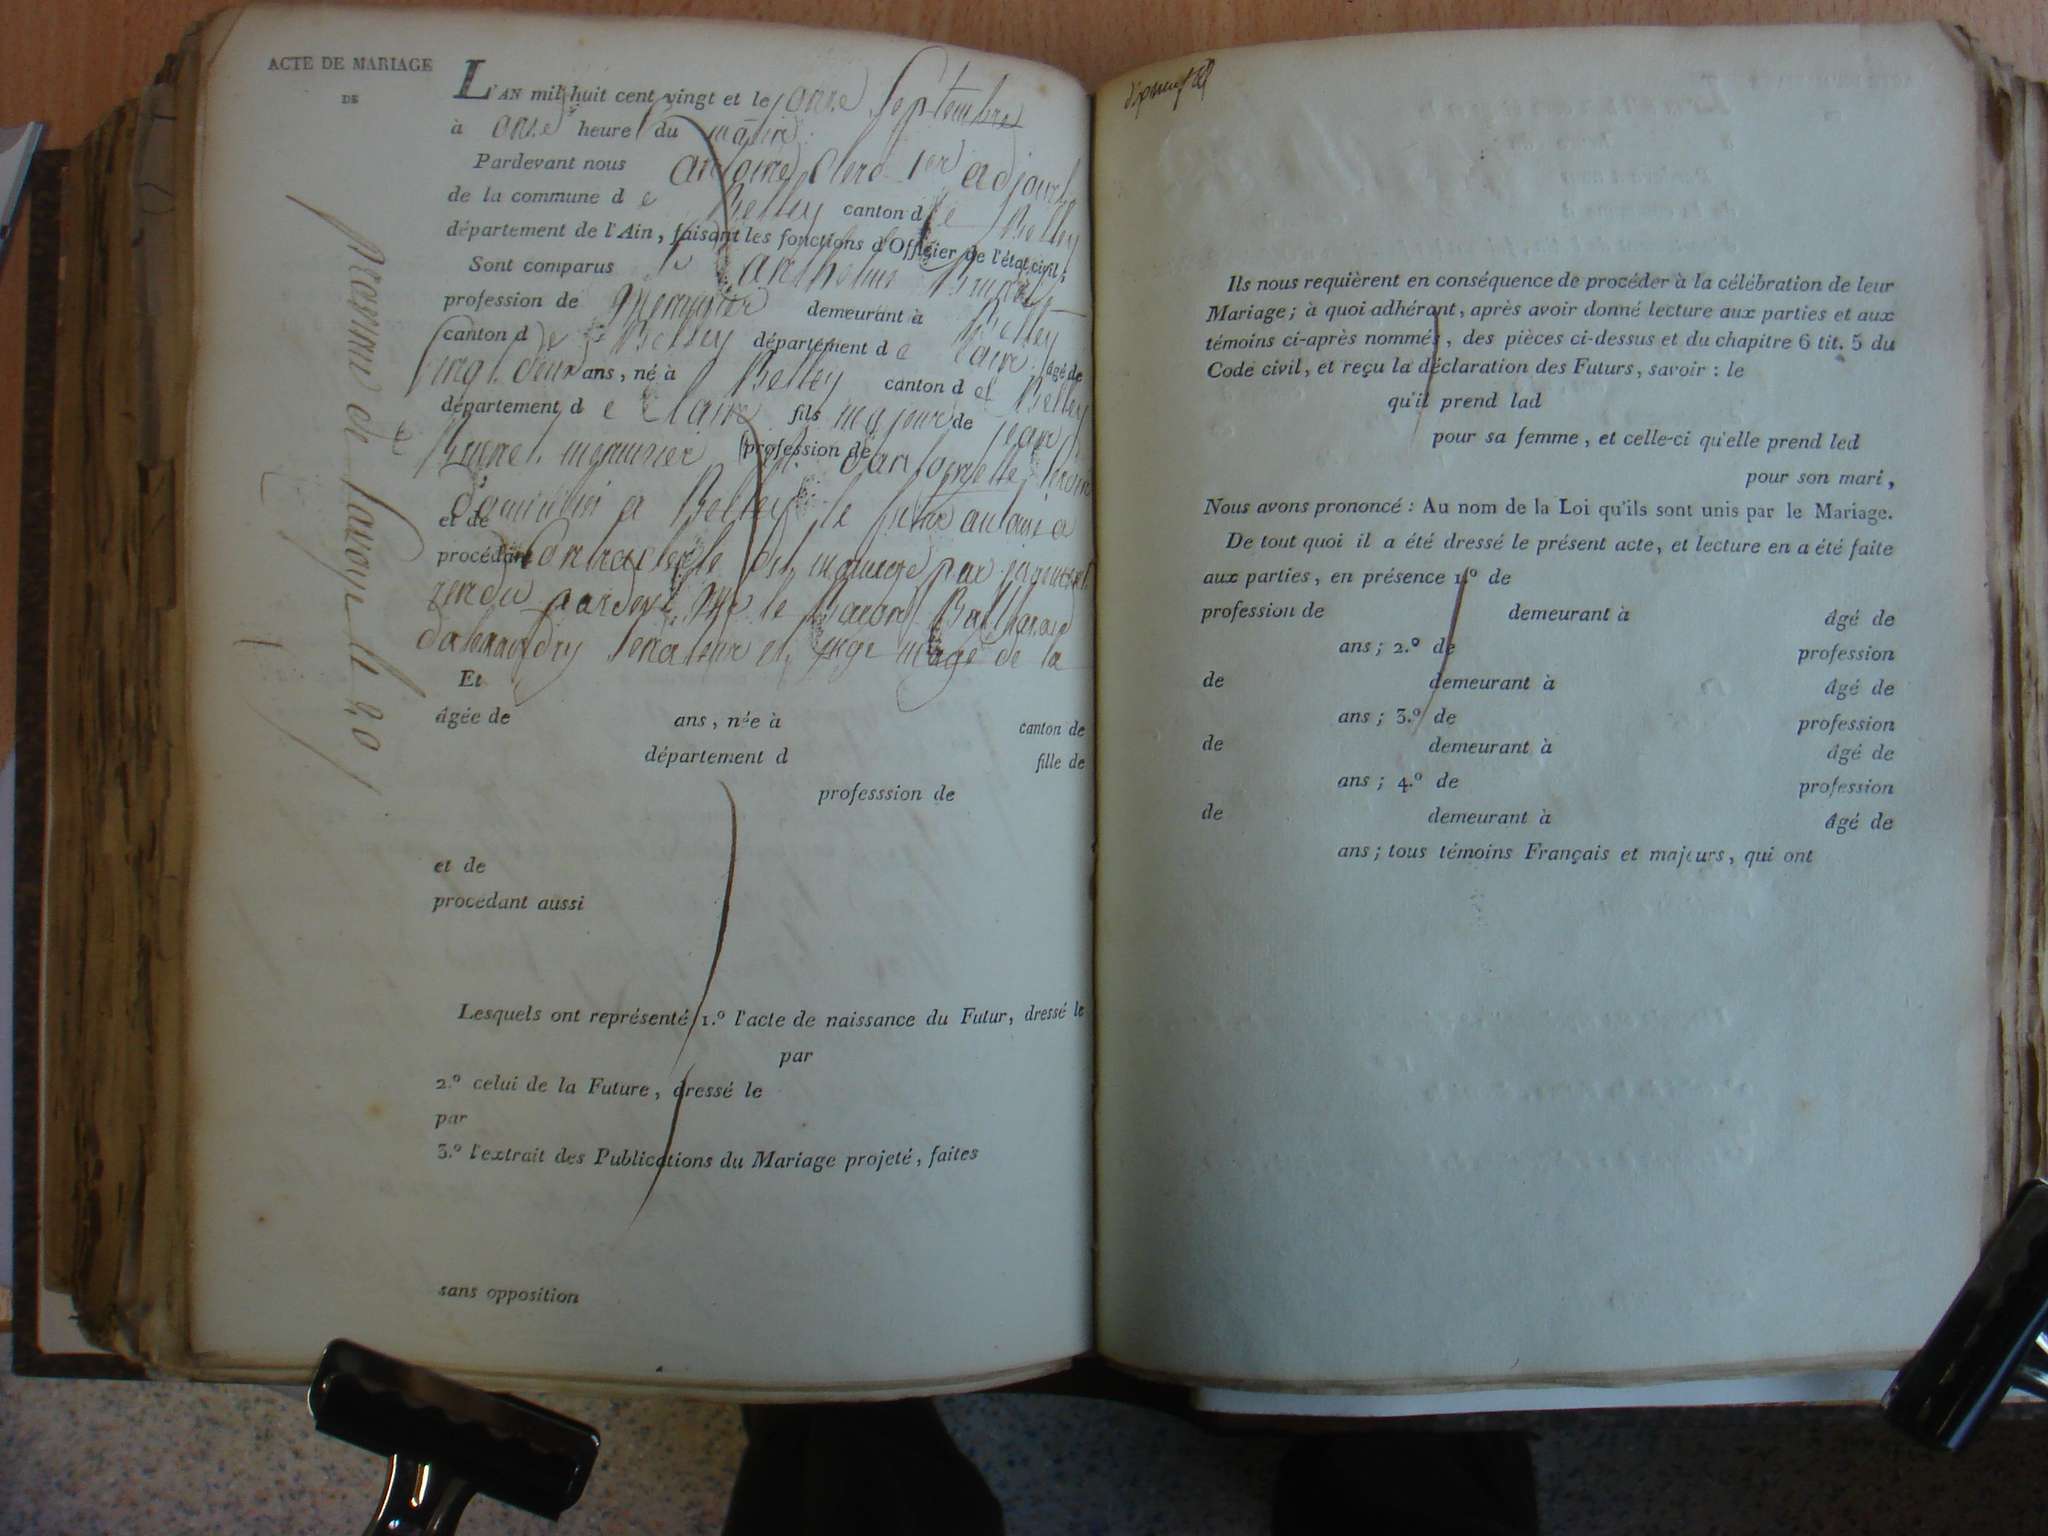 ACTE DE MARIAGE
DE
L'AN mil huit cent vingt et le onze Septembre
à onze heure du matin
Pardevant nous antoine Clerc 1er adjoint
de la commune d e Belley canton d e Belley
département de l'Ain, faisant les fonctions d'Officier de l'état civil;
Sont comparus anthelme Brunet
profession de Menuisier demeurant à Belley
canton d e Belley département d e laine âgé de
vingt deux ans, né à Belley canton d e Belley
département d e laine fils majeur de jean
Brunet menuisier profession de d'antoinette
a Belley le futur
et de
procédant par jugement
rendu pardevt Mr le Baron
senateur et juge mage de la
province de Savoye
Et
âgée de ans, née à canton de
département d fille de
professsion de
et de
procédant aussi
Lesquels ont représenté 1.º l'acte de naissance du Futur, dressé le
par
2.º celui de la Future, dressé le
par
3.º l'extrait des Publications du Mariage projeté, faites
sans opposition
Ils nous requièrent en conséquence de procéder à la célébration de leur
Mariage; à quoi adhérant, après avoir donné lecture aux parties et aux
témoins ci-après nommés, des pièces ci-dessus et du chapitre 6 tit. 5 du
Code civil, et reçu la déclaration des Futurs, savoir : le
qu'il prend lad
pour sa femme, et celle-ci qu'elle prend led
pour son mari,
Nous avons prononcé : Au nom de la Loi qu'ils sont unis par le Mariage.
De tout quoi il a été dressé le présent acte, et lecture en a été faite
aux parties, en présence 1.º de
profession de demeurant à âgé de
ans; 2.º de profession
de demeurant à âgé de
ans; 3.º de profession
de demeurant à âgé de
ans; 4.º de profession
de demeurant à âgé de
ans; tous témoins Français et majeurs, qui ont